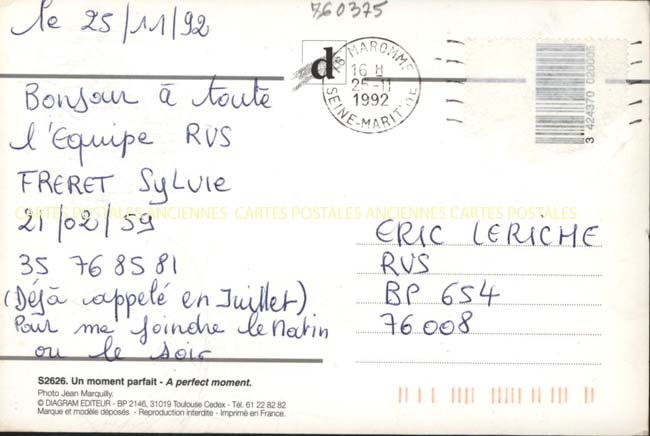 760375
le 25/11/92
d
76 MAROMME
16 H
25-11
1992
SEINE-MARITIME
3 424370 020005
Bonjour à toute
l'Equipe RVS
FRERET SYLVIE
CARTES POSTALES ANCIENNES CARTES POSTALES ANCIENNES CARTES POSTALES
21/02/59
35 76 85 81
(Déjà appelé en Juillet)
Pour me joindre le Matin
ou le soir
ERIC LERICHE
RVS
BP 654
76008
S2626. Un moment parfait - A perfect moment.
Photo Jean Marquilly.
© DIAGRAM EDITEUR - BP 2146, 31019 Toulouse Cedex - Tél. 61 22 82 82
Marque et modèle déposés - Reproduction interdite - Imprimé en France.